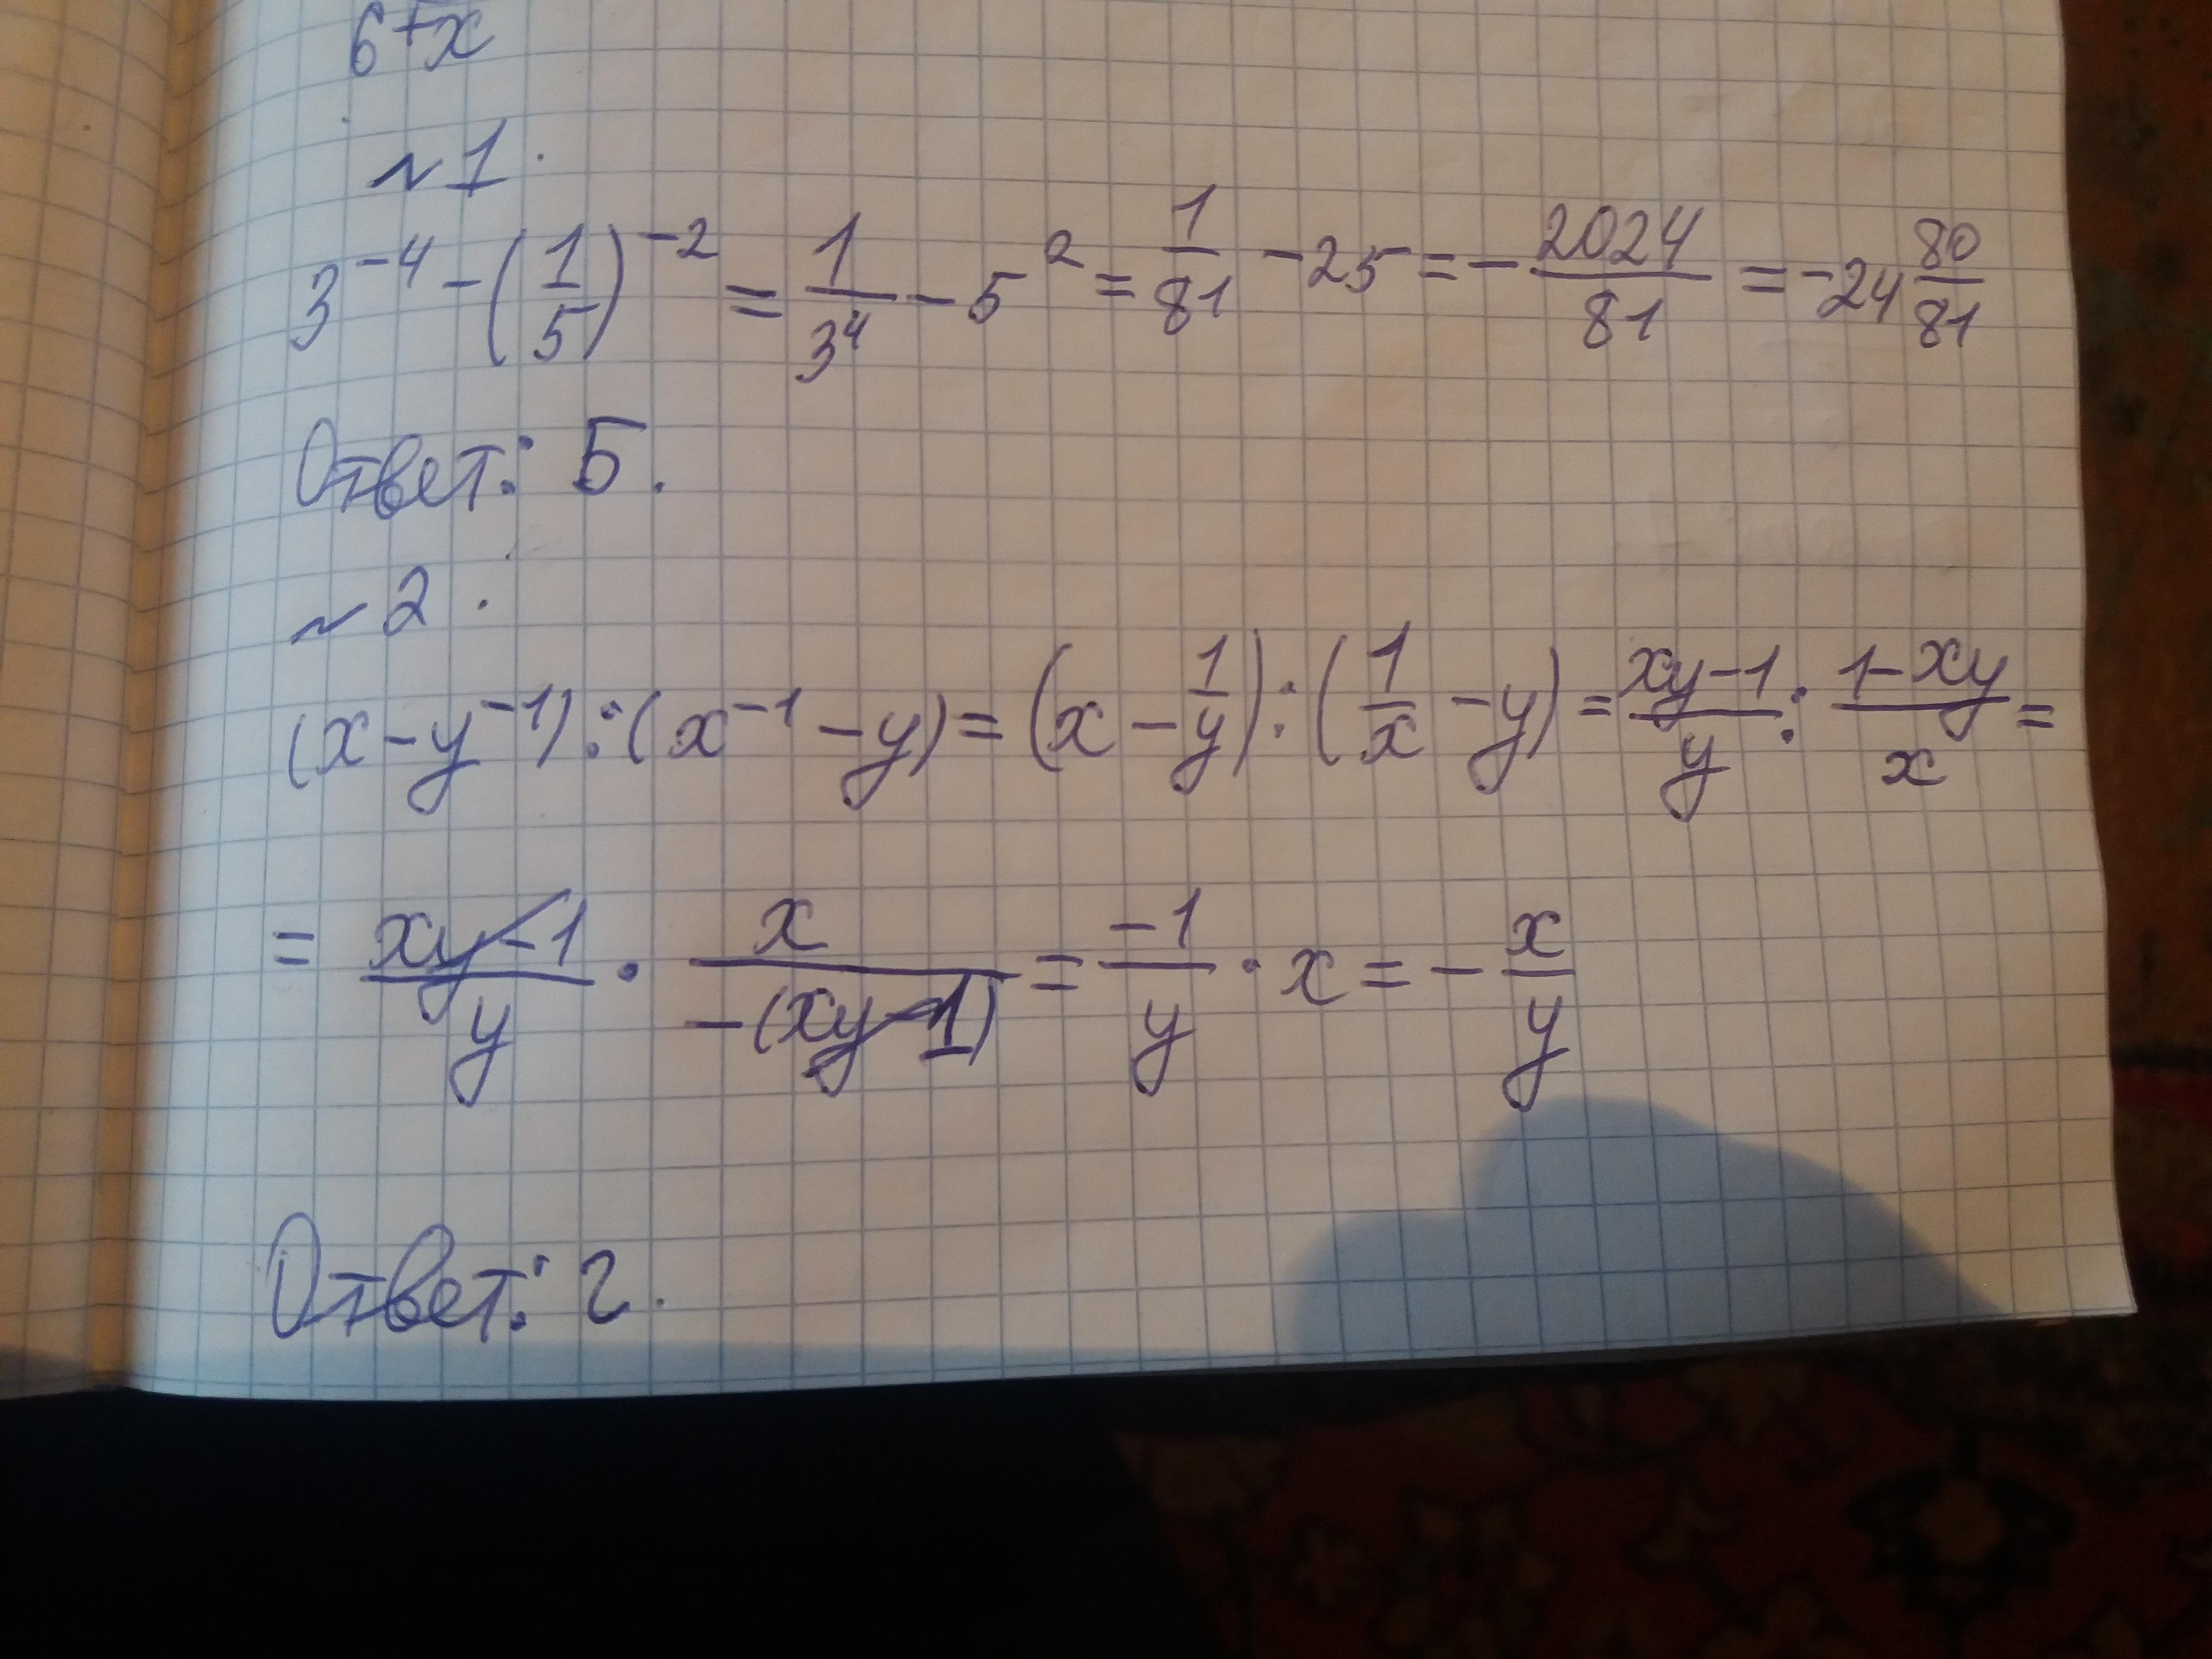 6+x
№1.
3^{-4} - (1/5)^{-2} = 1/3^4 - 5^2 = 1/81 - 25 = - 2024/81 = -24 80/81
Ответ: Б.
№2.
(x - y^{-1}) : (x^{-1} - y) = (x - 1/y) : (1/x - y) = (xy-1)/y : (1-xy)/x =
= (xy-1)/y · x/(-(xy-1)) = -1/y · x = - x/y
Ответ: г.